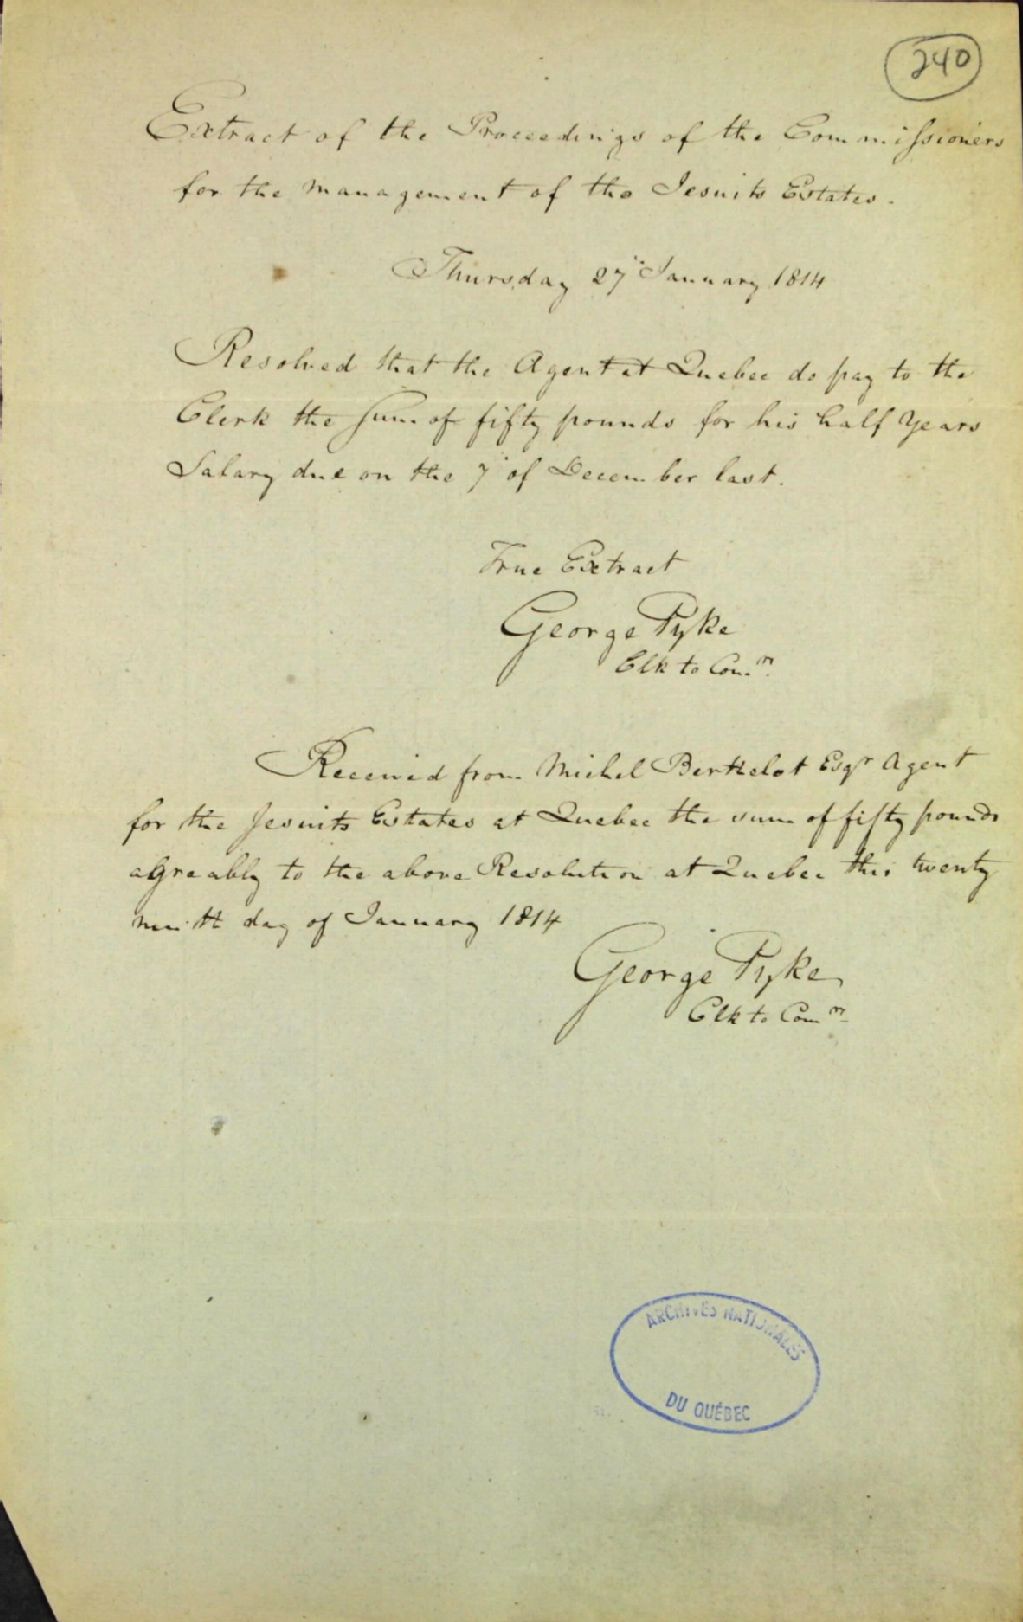 240
Extract of the Proceedings of the Commissioners
for the management of the Jesuits Estates.
Thursday 27 January 1814
Resolved that the Agent at Quebec do pay to the
Clerk the sum of fifty pounds for his half Years
Salary due on the 7 of December last.
True Extract
George Pyke
Clk to Com.rs
Received from Michel Berthelot Esqr Agent
for the Jesuits Estates at Quebec the sum of fifty pounds
agreably to the above Resolution at Quebec this twenty
ninth day of January 1814
George Pyke
Clk to Com rs
ARCHIVES NATIONALES
DU QUÉBEC